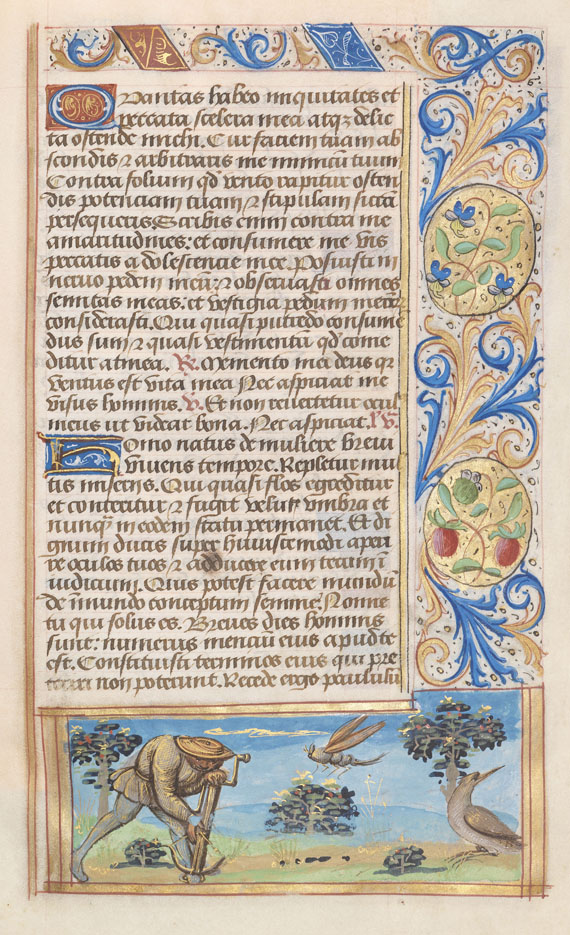 Quantas habeo iniquitates et
peccata scelera mea atqz delic
ta ostende michi. Cur faciem tuam ab
scondis ⁊ arbitraris me inimicū tuum
Contra folium qd̄ vento rapitur osten
dis potenciam tuam ⁊ stipulam siccā
persequeris. Scribis enim contra me
amaritudines: et consumere me vis
peccatis adolescentie mee. Posuisti in
nervo pedem meū: ⁊ observasti omnes
semitas meas: et vestigia pedum meorū
considerasti. Qui quasi putredo consumē
dus sum ⁊ quasi vestimentū qd̄ come
ditur a tinea. R̄. Memento mei deus qr
ventus est vita mea Nec aspiciat me
visus hominis. v̄. Et non revertetur ocul
meus ut videat bona. Nec aspiciat.
Homo natus de muliere brevi
vivens tempore. Repletur mul
tis miseriis. Qui quasi flos egreditur
et conteritur ⁊ fugit velut umbra et
nunqȝ in eodem statu permanet. Et di
gnum ducis super huiuscemodi aperi
re oculos tuos ⁊ adducere eum tecum ī
iudicium. Quis potest facere mundū
de īmundo conceptum semine. Nonne
tu qui solus es. Breves dies hominis
sunt: numerus mensiū eius apud te
est. Constituisti terminos eius qui pre
teriri non poterunt. Recede ergo paululū